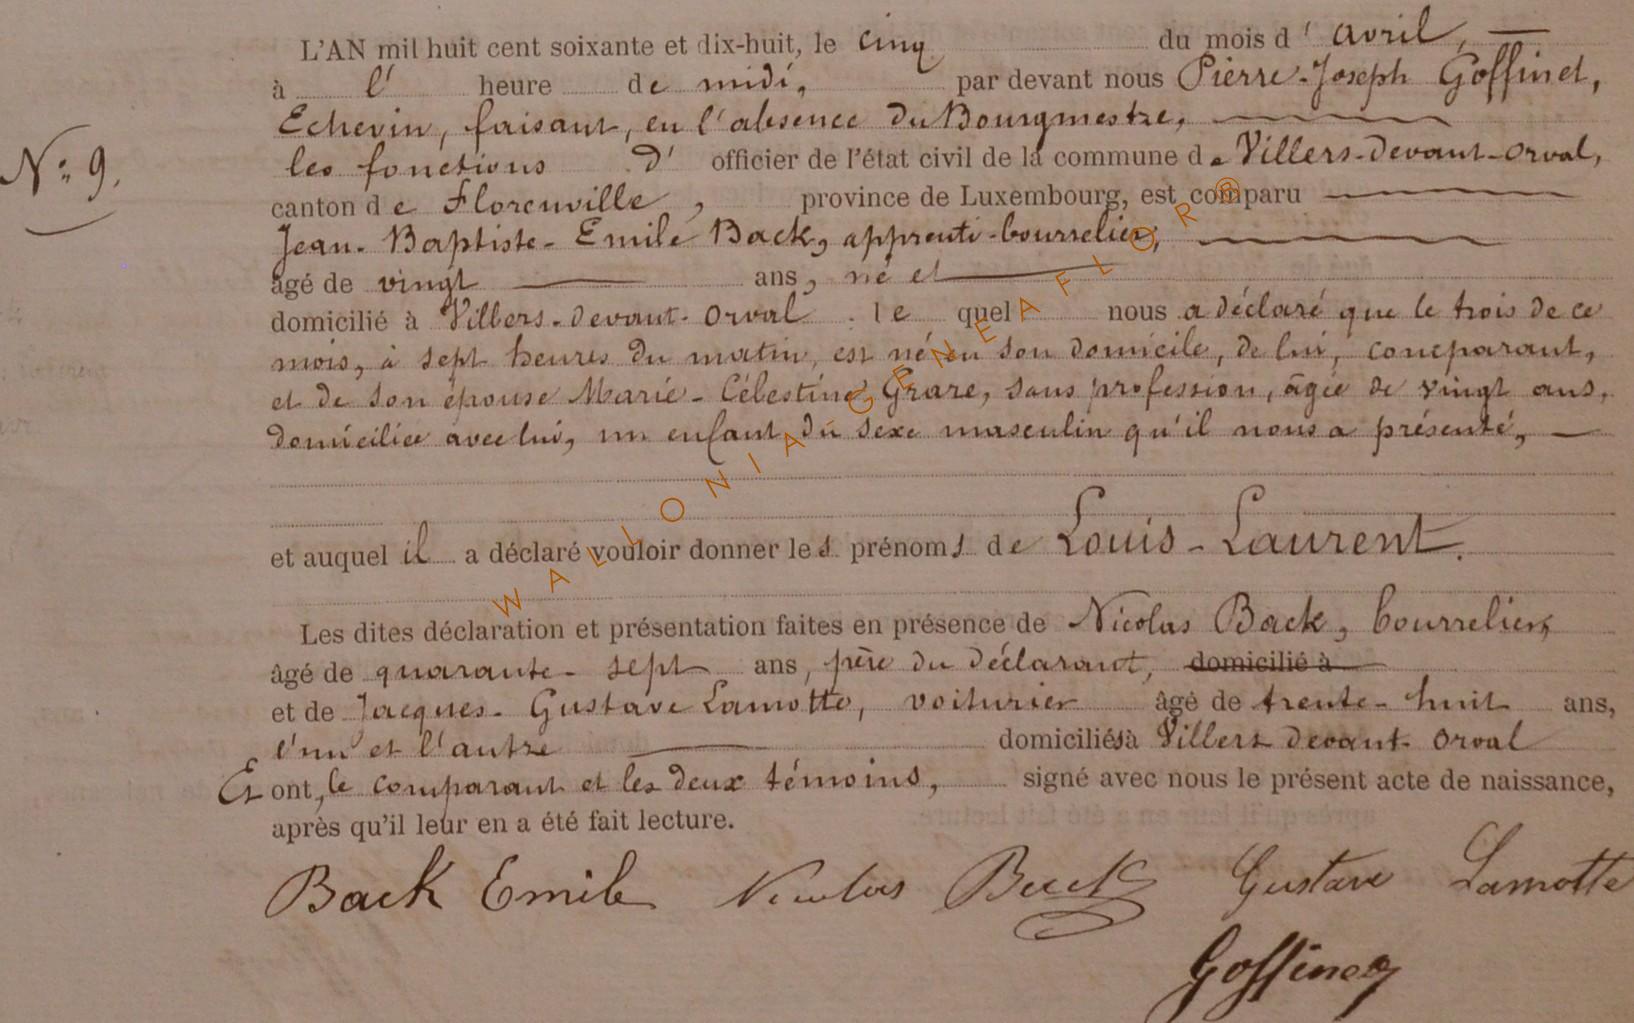 L'AN mil huit cent soixante et dix-huit, le cinq du mois d' avril,
à l' heure de midi, par devant nous Pierre-Joseph Goffinet,
Echevin, faisant, en l'absence du Bourgmestre,
N° 9.
les fonctions d' officier de l'état civil de la commune de Villers-devant-Orval,
canton de Florenville, province de Luxembourg, est comparu
Jean-Baptiste-Emile Back, apprenti-bourrelier,
âgé de vingt ans, né et
domicilié à Villers-devant-Orval lequel nous a déclaré que le trois de ce
mois, à sept heures du matin, est né en son domicile, de lui, comparant,
et de son épouse Marie-Célestine Grare, sans profession, âgée de vingt ans,
domiciliée avec lui, un enfant du sexe masculin qu'il nous a présenté,
et auquel il a déclaré vouloir donner les prénoms de Louis-Laurent.
Les dites déclaration et présentation faites en présence de Nicolas Back, bourrelier,
âgé de quarante-sept ans, père du déclarant, domicilié à
et de Jacques-Gustave Lamotte, voiturier âgé de trente-huit ans,
l'un et l'autre domiciliés à Villers devant-Orval
Et ont, le comparant et les deux témoins, signé avec nous le présent acte de naissance,
après qu'il leur en a été fait lecture.
Back Emile Nicolas Back Gustave Lamotte
Goffinet
WALLONIA GENEAFLOR®